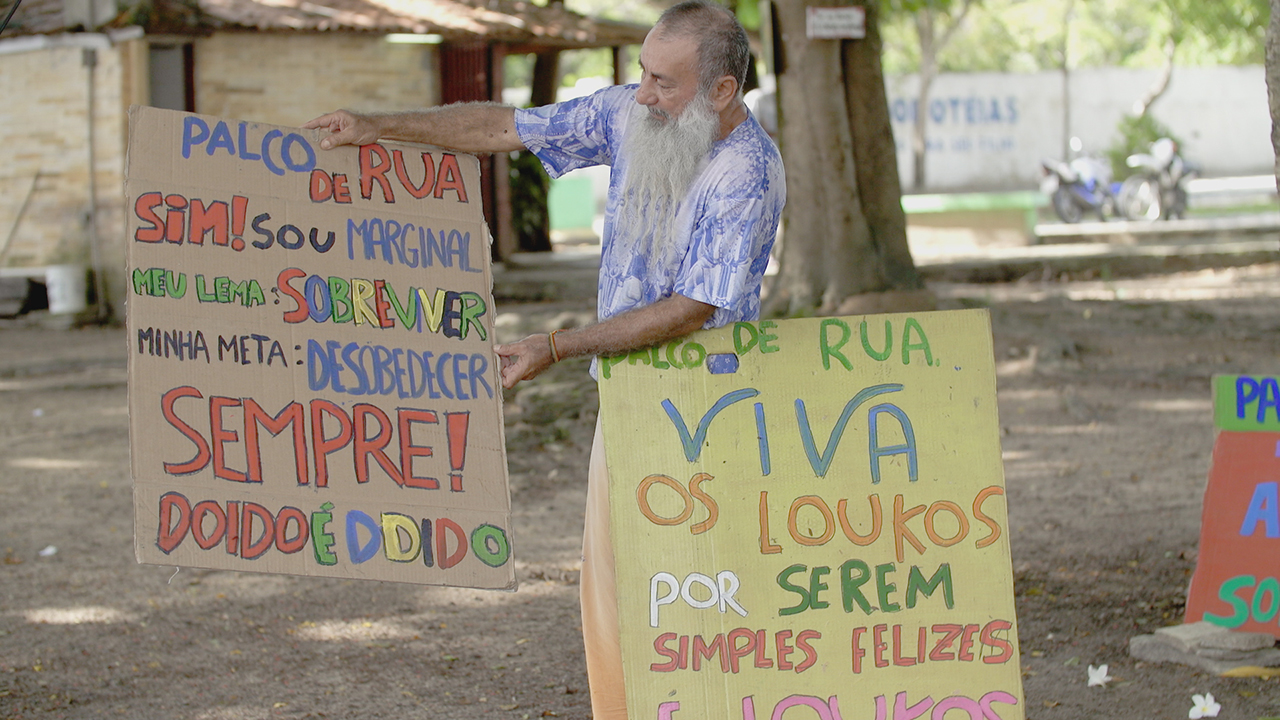 PALCO
DE RUA
SIM! SOU MARGINAL
MEU LEMA: SOBREVIVER
MINHA META: DESOBEDECER
SEMPRE!
DOIDO É DOIDO
PALCO DE RUA.
VIVA
OS LOUKOS
POR SEREM
SIMPLES FELIZES
É LOUKOS
PA
A
SO